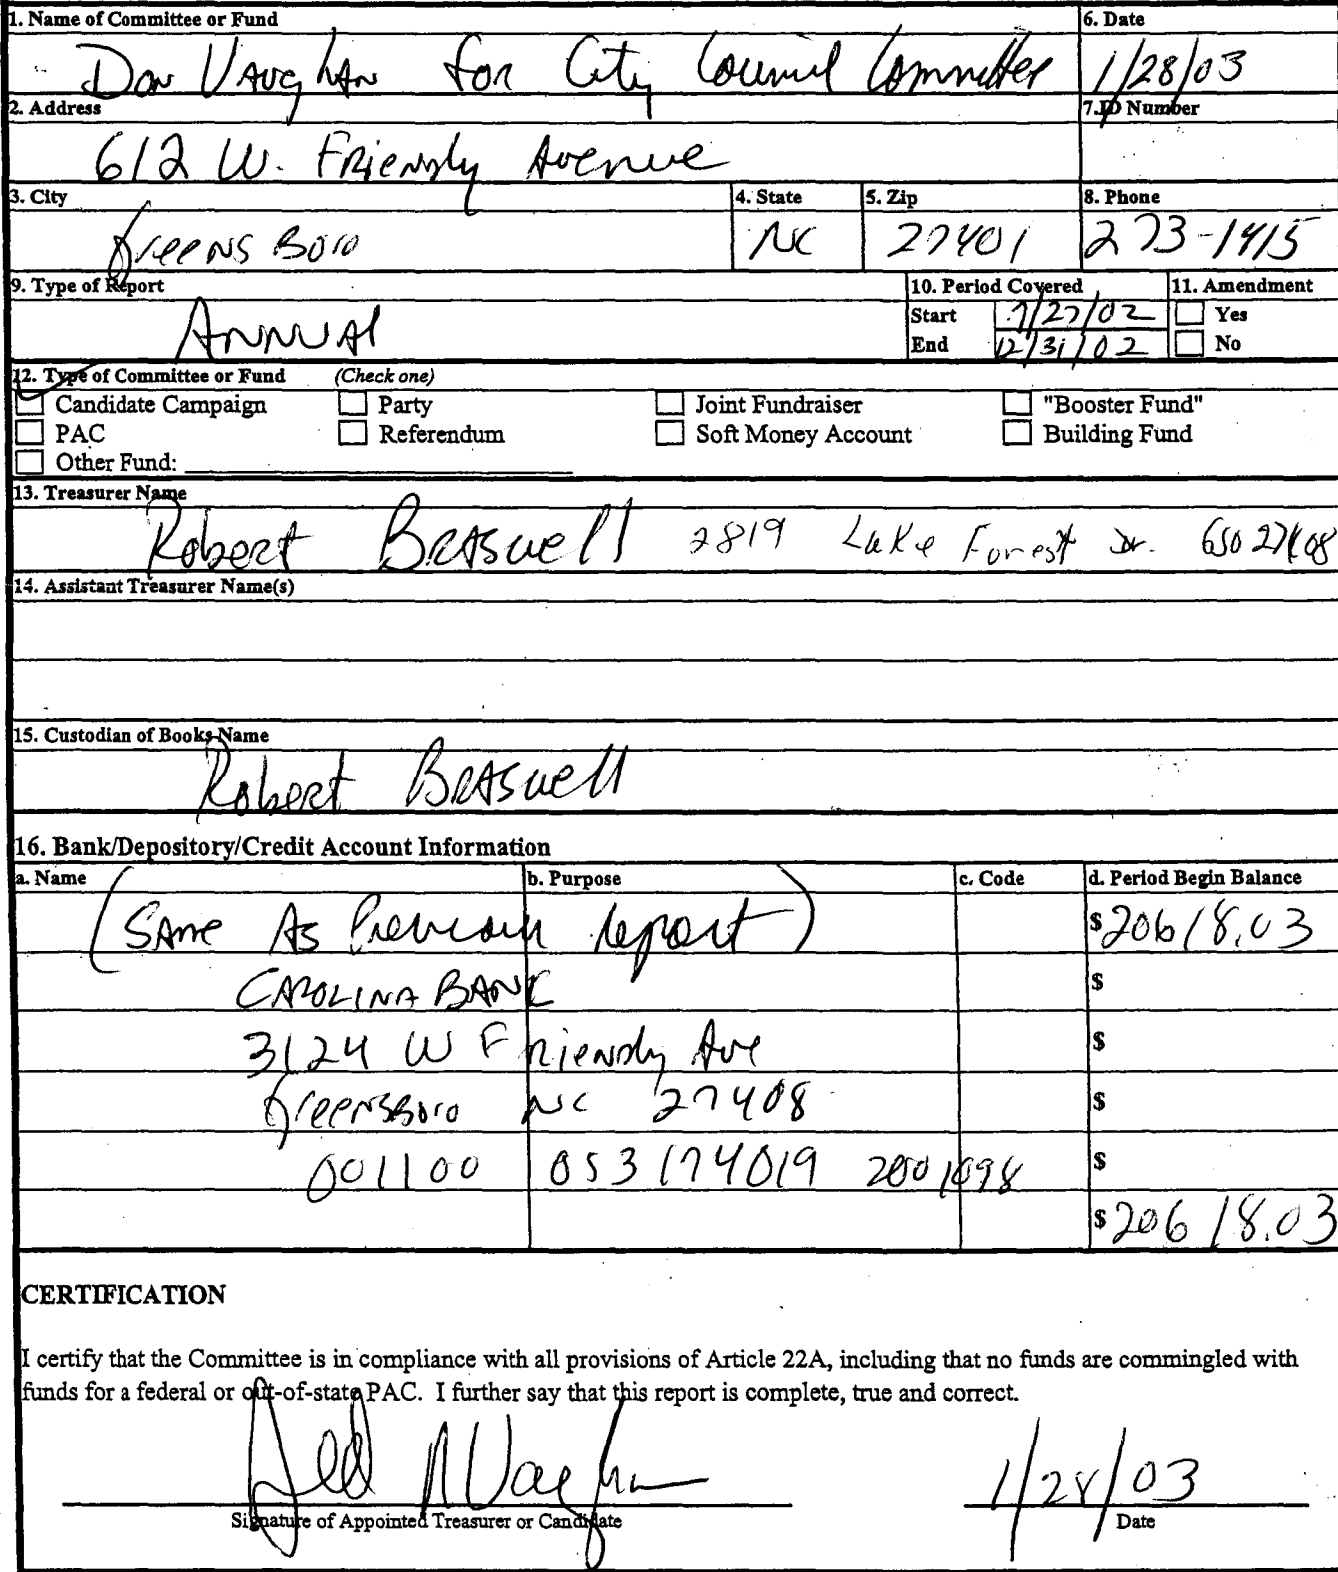 1. Name of Committee or Fund 6. Date
Don Vaughan for City Council Committee 1/28/03
2. Address 7. ID Number
612 W. Friendly Avenue
3. City 4. State 5. Zip 8. Phone
GreensBoro NC 27401 273-1415
9. Type of Report 10. Period Covered 11. Amendment
Annual
Start 7/27/02 Yes
End 12/31/02 No
12. Type of Committee or Fund (Check one)
Candidate Campaign Party Joint Fundraiser "Booster Fund"
PAC Referendum Soft Money Account Building Fund
Other Fund:
13. Treasurer Name
Robert Braswell 2819 Lake Forest Dr. GSO 27408
14. Assistant Treasurer Name(s)
15. Custodian of Books Name
Robert Braswell
16. Bank/Depository/Credit Account Information
a. Name b. Purpose c. Code d. Period Begin Balance
(Same As Previous report) $20618.03
CAROLINA BANK $
3124 W Friendly Ave $
Greensboro NC 27408 $
001100 053174019 2001098 $
$20618.03
CERTIFICATION
I certify that the Committee is in compliance with all provisions of Article 22A, including that no funds are commingled with
funds for a federal or out-of-state PAC. I further say that this report is complete, true and correct.
1/28/03
Signature of Appointed Treasurer or Candidate Date